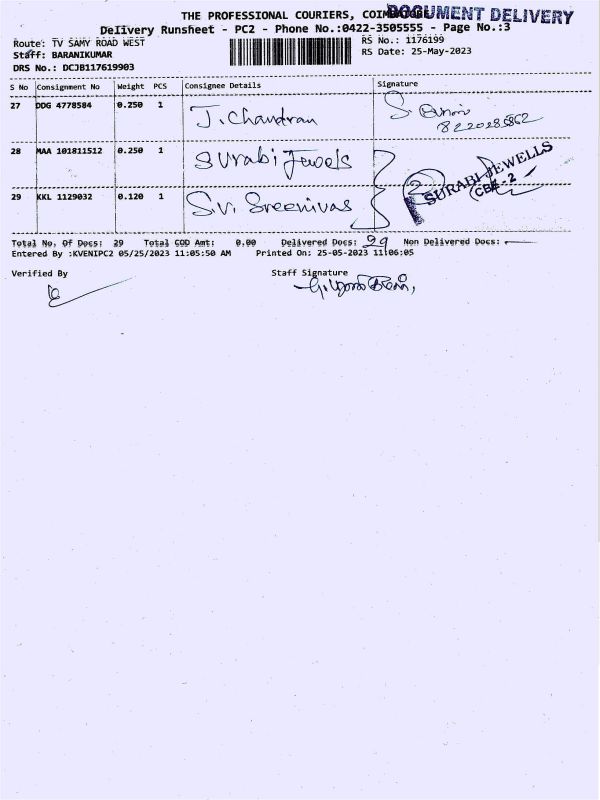 THE PROFESSIONAL COURIERS, COIMBATORE
DOCUMENT DELIVERY
Delivery Runsheet - PC2 - Phone No.:0422-3505555 - Page No.:3
Route: TV SAMY ROAD WEST
RS No.: 1176199
Staff: BARANIKUMAR
RS Date: 25-May-2023
DRS No.: DCJB117619903
S No Consignment No Weight PCS Consignee Details Signature
27 DDG 4778584 0.250 1 J. Chandran
28 MAA 101811512 0.250 1 Surabi Jewels
SURABI JEWELLS
CBE-2
29 KKL 1129032 0.120 1 S.V. Sreenivas
Total No. Of Docs: 29 Total COD Amt: 0.00 Delivered Docs: 29 Non Delivered Docs:
Entered By :KVENIPC2 05/25/2023 11:05:50 AM Printed On: 25-05-2023 11:06:05
Verified By Staff Signature